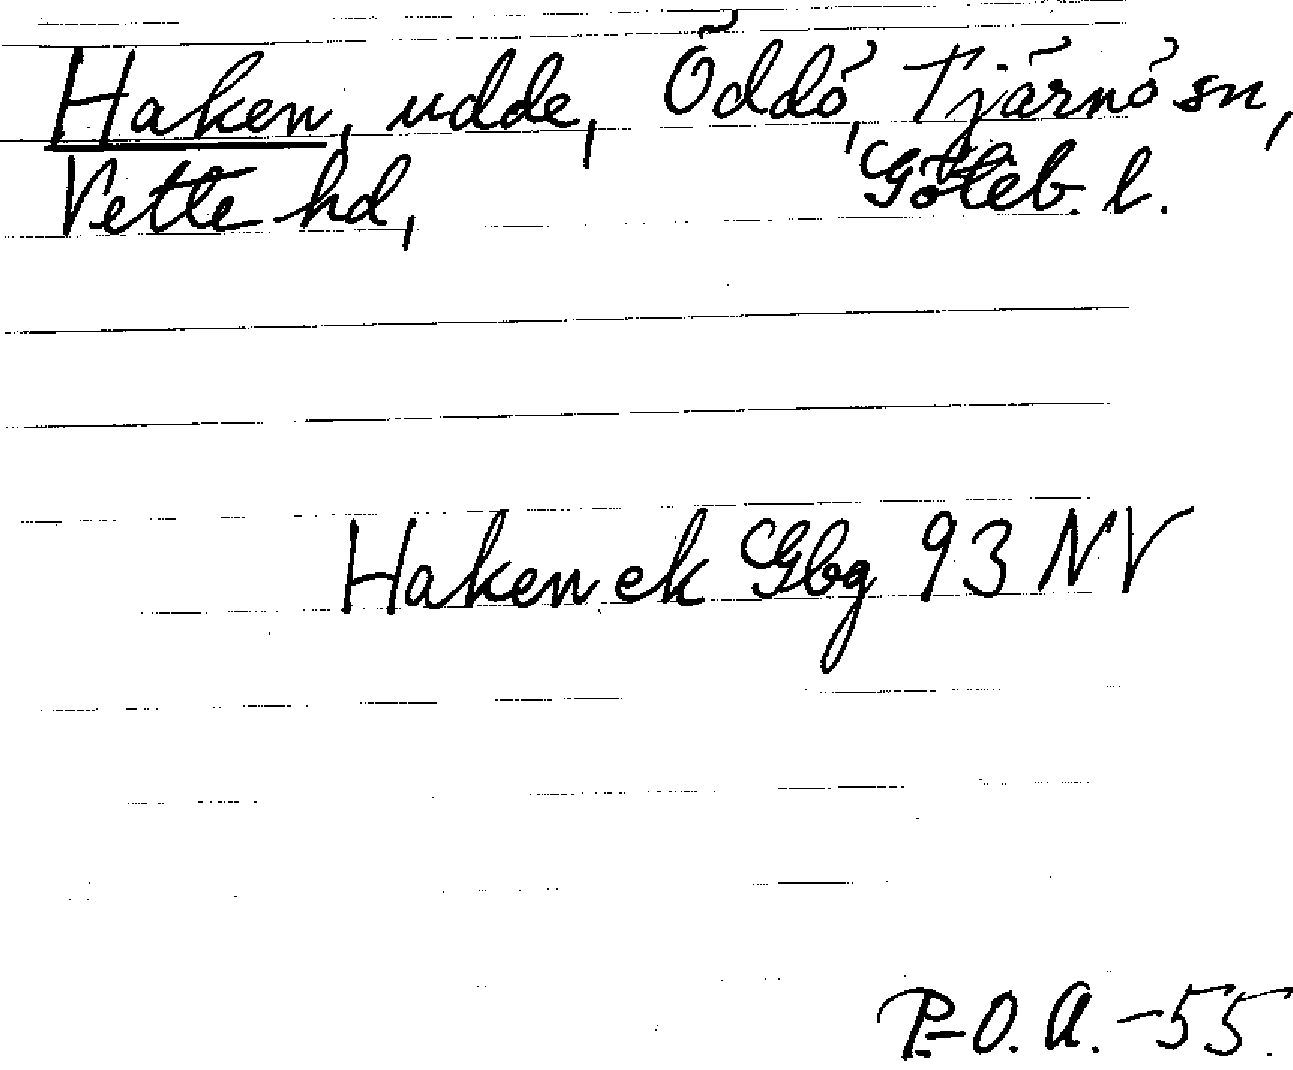 Haken, udde, Öddö, Tjärnö sn,
Vette hd, Göteb. l.
Haken ek Gbg 93 NV
P.-O. A. -55.